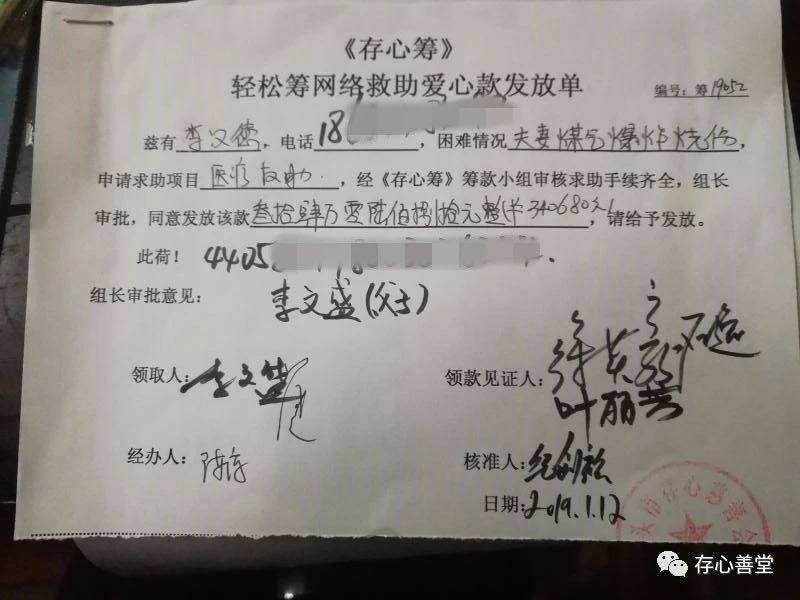 《存心筹》
轻松筹网络救助爱心款发放单
编号：筹19052
兹有 李文儒，电话 18，困难情况 夫妻煤气爆炸烧伤，
申请求助项目 医疗救助，经《存心筹》筹款小组审核求助手续齐全，组长
审批，同意发放该款 叁拾肆万零陆佰捌拾元整(¥340680元)，请给予发放。
此荷！ 4405
组长审批意见： 李文盛(父子)
领取人：李文盛
领款见证人：
叶丽芸
经办人：
核准人：
日期：2019.1.12
头市存心慈善会
存心善堂